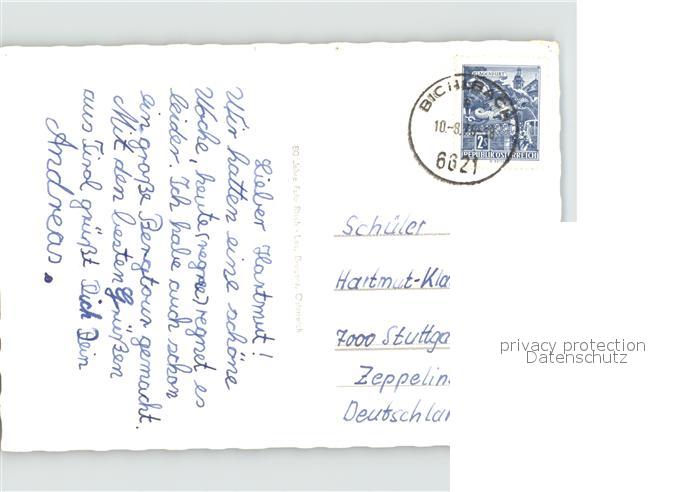 Lieber Hartmut!
Wir hatten eine schöne
Woche, heute (regne) regnet es
leider. Ich habe auch schon
ein große Bergtour gemacht.
Mit den besten Grüßen
aus Tirol grüßt Dich Dein
Andreas.
BICHLBACH
10.-8.
6621
KLAGENFURT
2 S
REPUBLIK ÖSTERREICH
Schüler
Hartmut-Kla
7000 Stuttga
Zeppelin
Deutschlan
privacy protection
Datenschutz